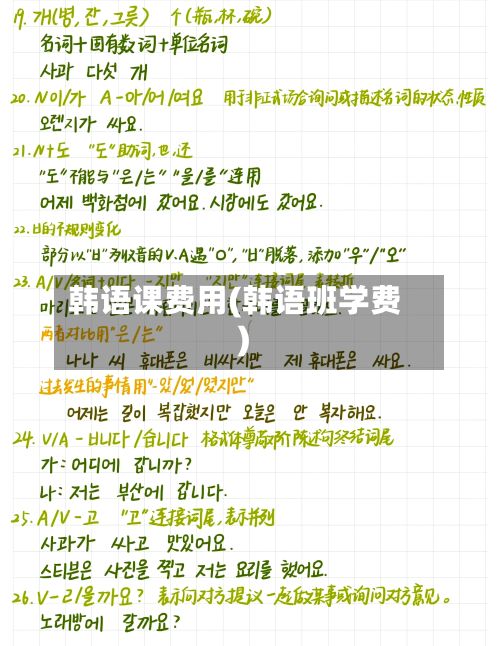 19.개(병,잔,그릇) 个(瓶,杯,碗)
名词+固有数词+单位名词
사과 다섯 개
20.N이/가 A-아/어/여요 用于非正式场合询问或描述名词的状态,性质
오렌지가 싸요.
21.N+도 "도"助词,也,还
"도"不能与"은/는""을/를"连用
어제 백화점에 갔어요.시장에도 갔어요.
22.ㅂ的不规则变化
部分以"ㅂ"为收音的V.A遇"ㅇ","ㅂ"脱落,添加"우"/"오"
23.A/V/名词+이다 -지만 "지만"连接词尾,表转折
韩语课费用(韩语班学费)
两者对比用"은/는"
나나 씨 휴대폰은 비싸지만 제 휴대폰은 싸요.
过去发生的事情用"-았/었/였지만"
어제는 길이 복잡했지만 오늘은 안 복자해요.
24.V/A-ㅂ니다/습니다 格式体尊敬阶陈述句终结词尾
가:어디에 갑니까?
나:저는 부산에 갑니다.
25.A/V-고 "고"连接词尾,表示并列
사과가 싸고 맛있어요.
스티븐은 사진을 찍고 저는 요리를 했어요.
26.V-ㄹ/을까요? 表示向对方提议一起做某事或询问对方意见。
노래방에 갈까요?